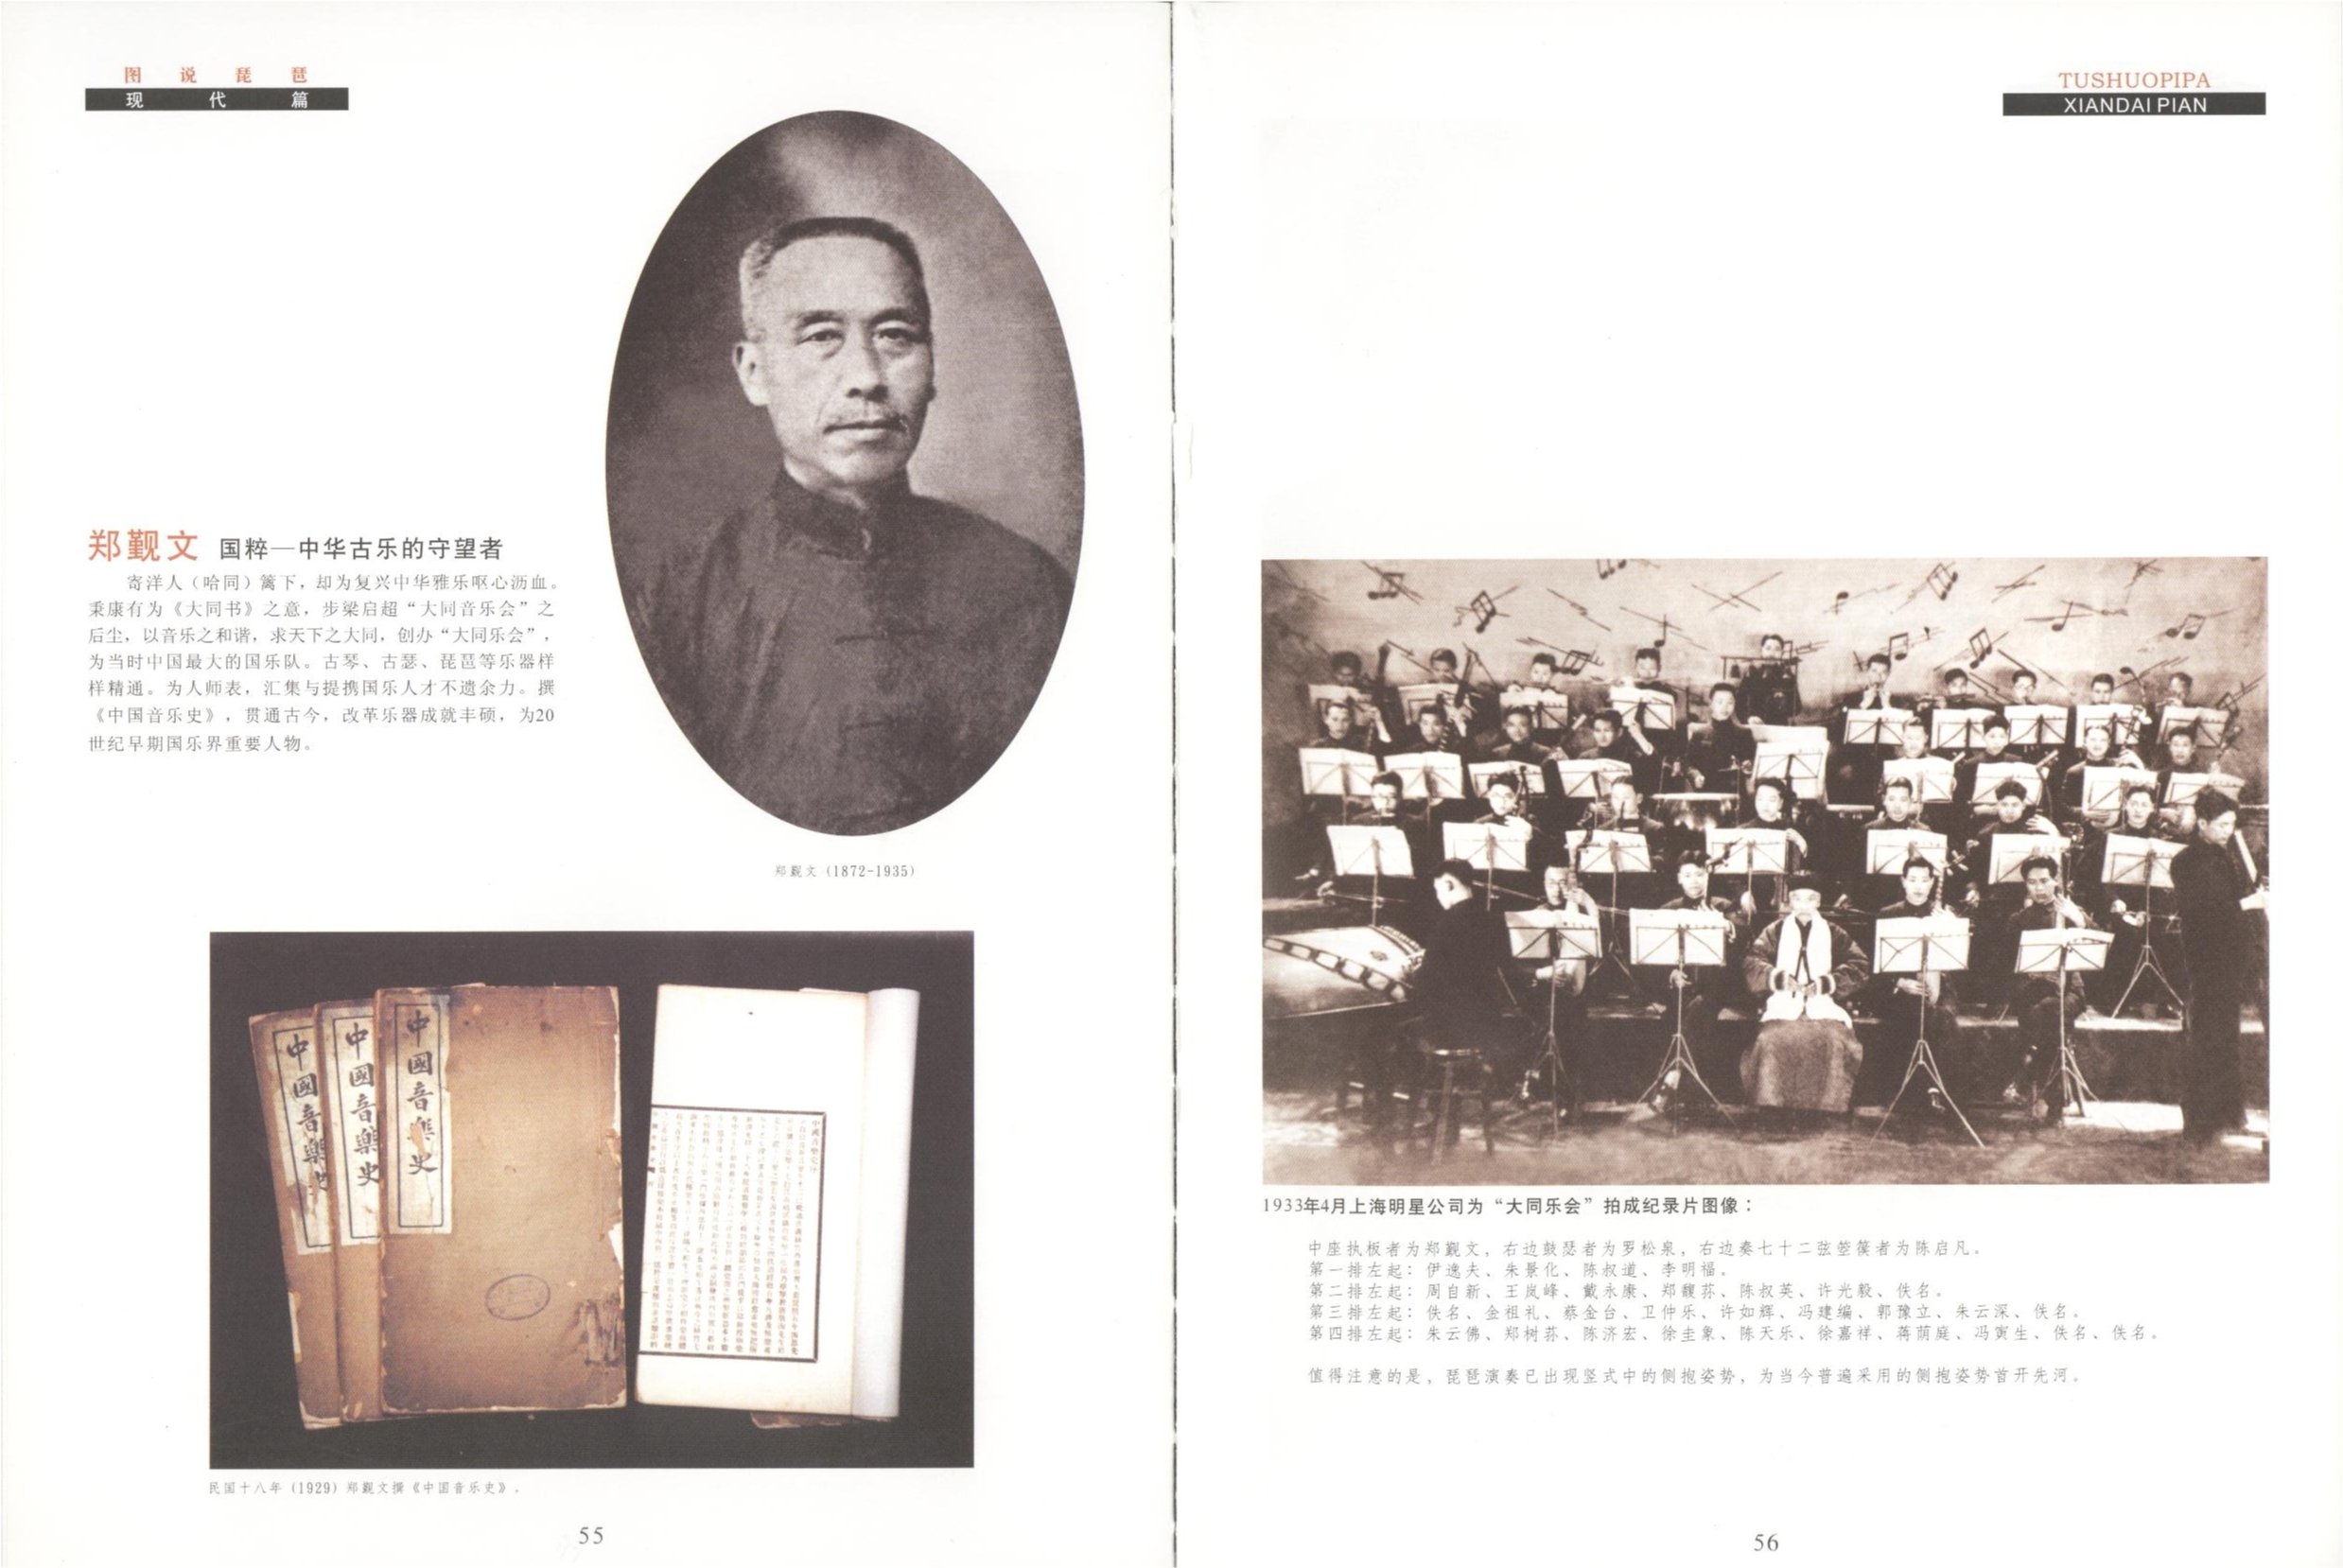 图说琵琶
现代篇
郑觐文 国粹—中华古乐的守望者
寄洋人（哈同）篱下，却为复兴中华雅乐呕心沥血。
秉康有为《大同书》之意，步梁启超“大同音乐会”之
后尘，以音乐之和谐，求天下之大同，创办“大同乐会”，
为当时中国最大的国乐队。古琴、古瑟、琵琶等乐器样
样精通。为人师表，汇集与提携国乐人才不遗余力。撰
《中国音乐史》，贯通古今，改革乐器成就丰硕，为20
世纪早期国乐界重要人物。
郑觐文 (1872-1935)
中國音樂史
中國音樂史
中國音樂史
民国十八年 (1929) 郑觐文撰《中国音乐史》.
55
TUSHUOPIPA
XIANDAI PIAN
1933年4月上海明星公司为“大同乐会”拍成纪录片图像：
中座执板者为郑觐文，右边鼓瑟者为罗松泉，右边奏七十二弦箜篌者为陈启凡。
第一排左起：伊逸夫、朱景化、陈叔道、李明福。
第二排左起：周自新、王岚峰、戴永康、郑馥荪、陈叔英、许光毅、佚名。
第三排左起：佚名、金祖礼、蔡金台、卫仲乐、许如辉、冯建编、郭豫立、朱云深、佚名。
第四排左起：朱云佛、郑树荪、陈济宏、徐圭象、陈天乐、徐嘉祥、蒋荫庭、冯寅生、佚名、佚名。
值得注意的是，琵琶演奏已出现竖式中的侧抱姿势，为当今普遍采用的侧抱姿势首开先河。
56